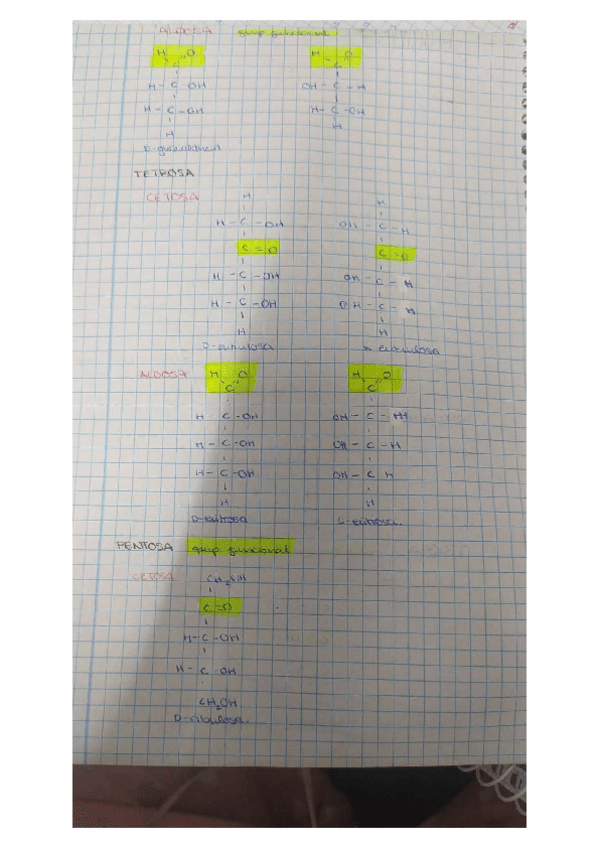 ALDOSA grup funcional
H O H O
C C
H - C - OH OH - C - H
H - C - OH H - C - OH
H H
TETROSA
CETOSA
H H
H - C - OH OH - C - H
C = O C = O
H - C - OH OH - C - H
H - C - OH OH - C - H
H H
D-eritrulosa eritrulosa
ALDOSA H O H O
C C
H - C - OH OH - C - H
H - C - OH OH - C - H
H - C - OH OH - C H
H H
D-eritrosa L-eritrosa
PENTOSA grup funcional
CETOSA CH2OH
C = O
H - C - OH
H - C - OH
CH2OH
D-ribulosa